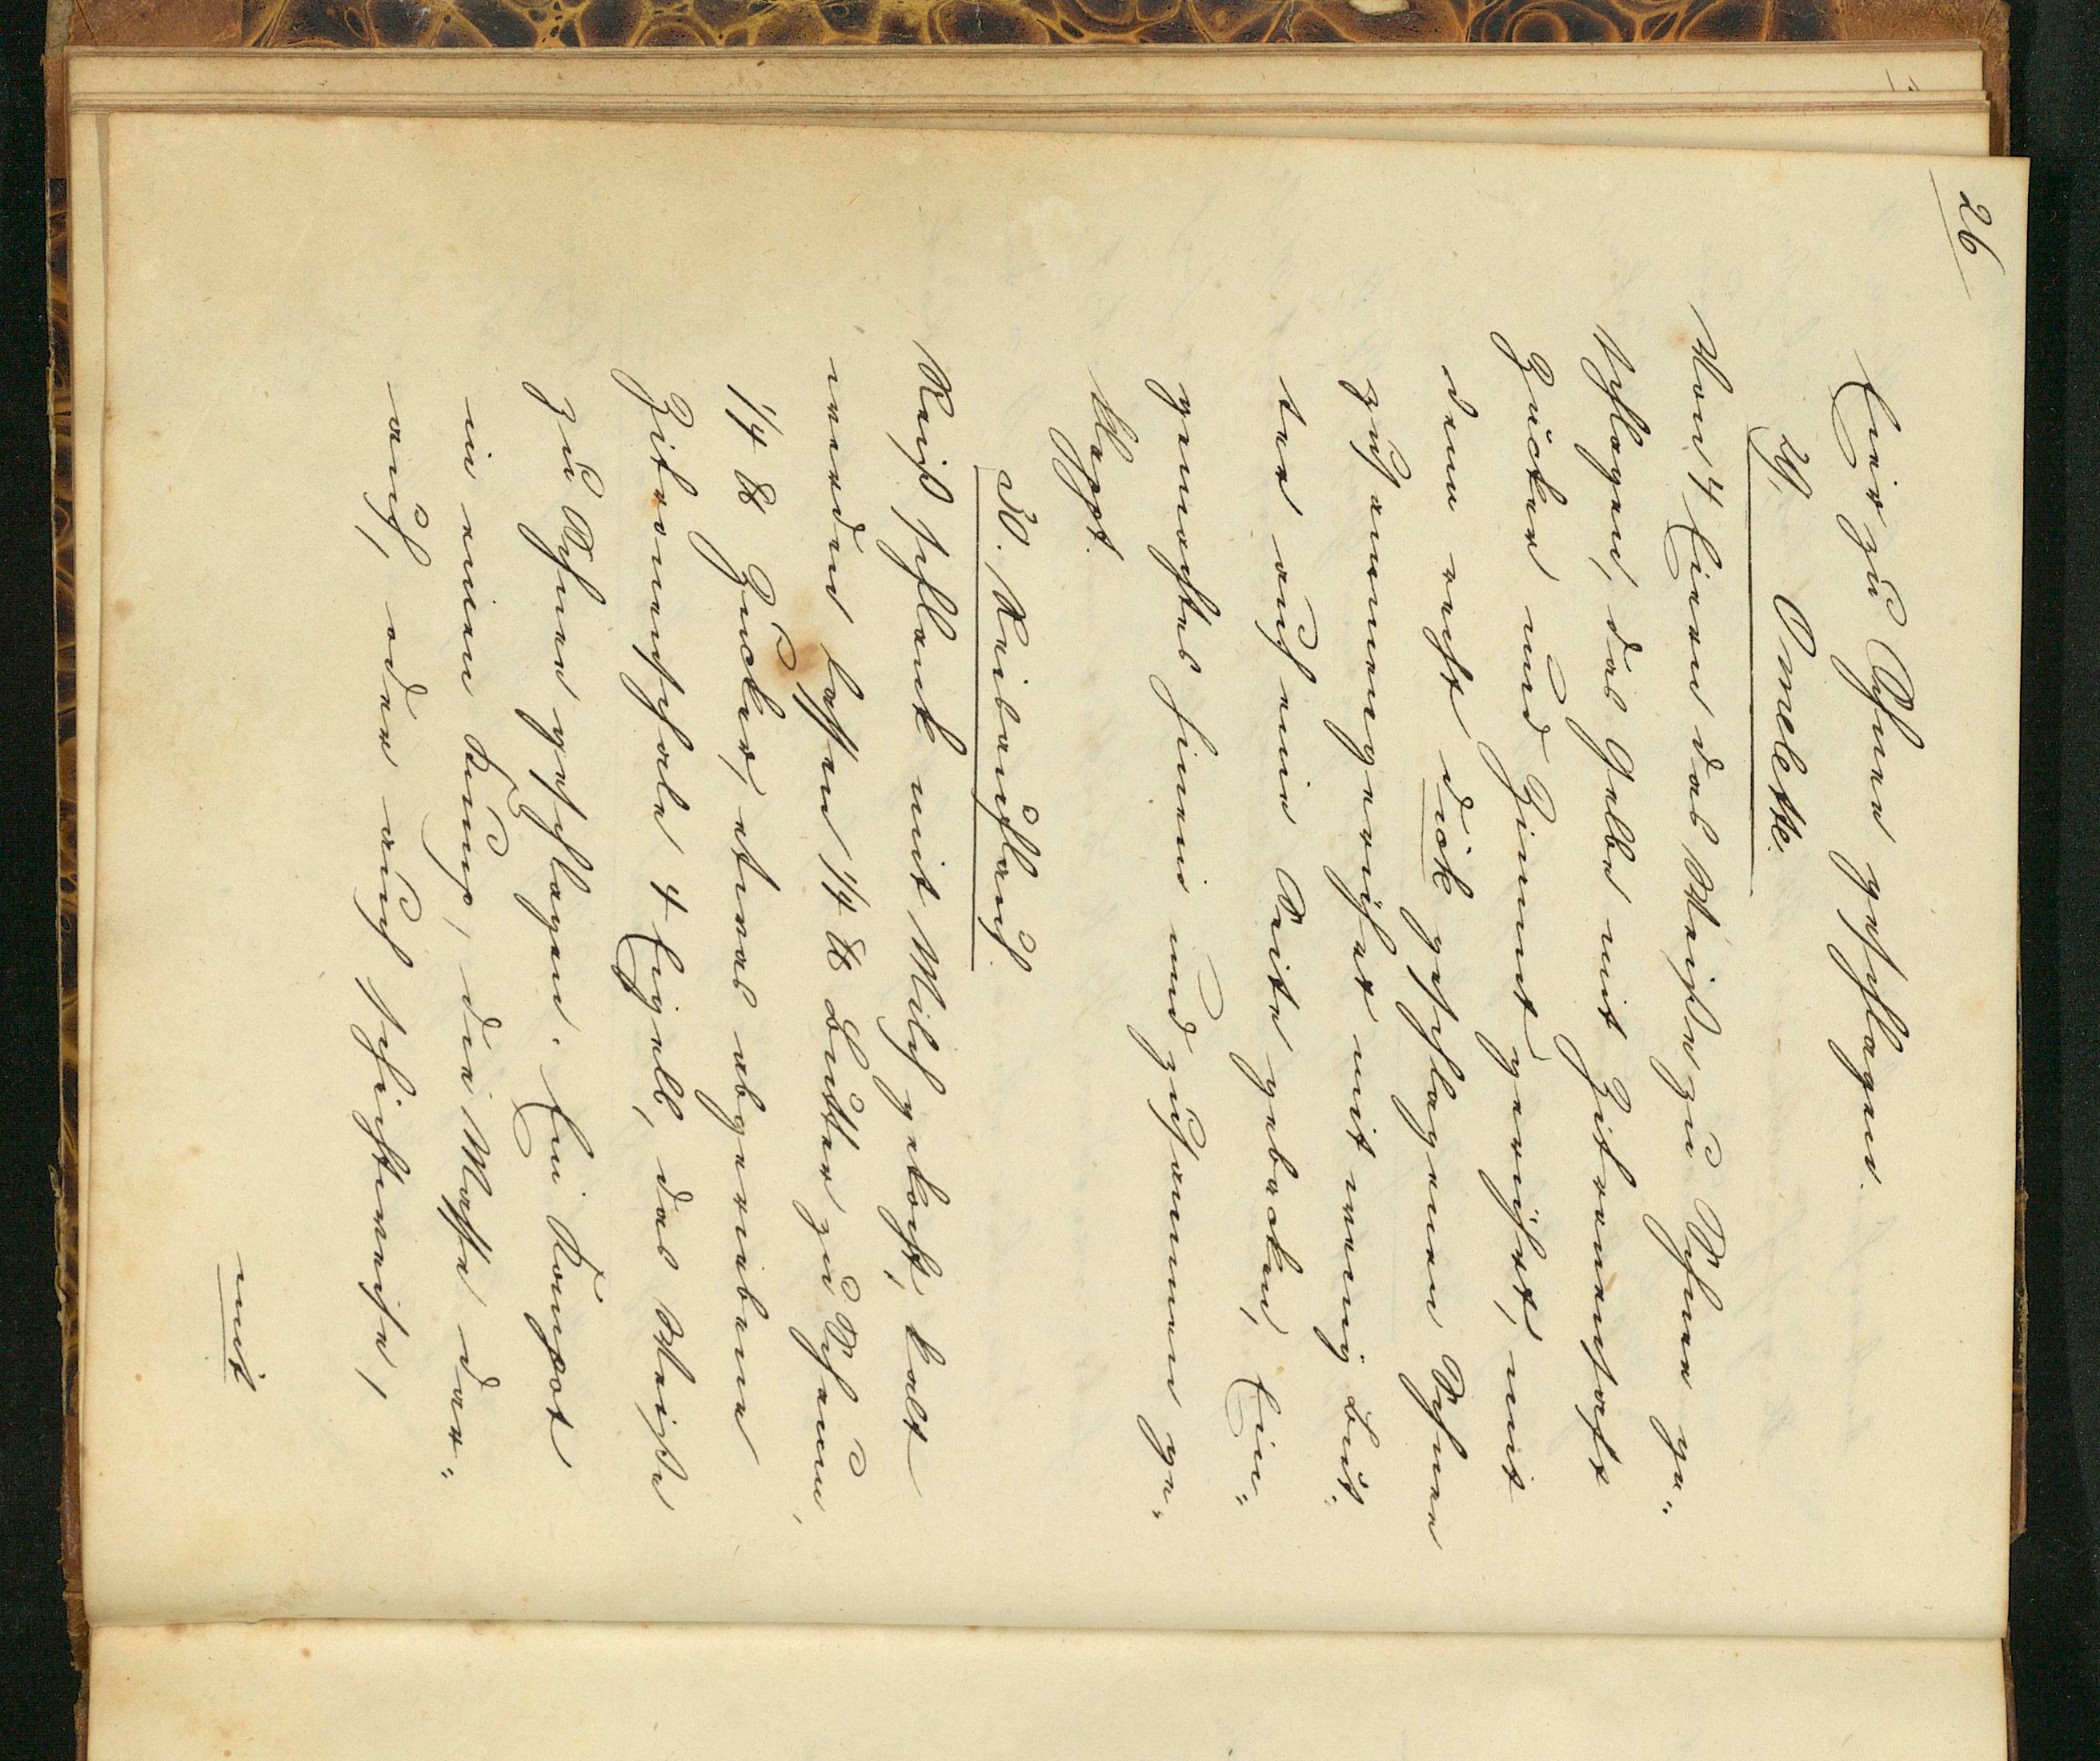 26
Eier zu Schnee geschlagen.
29. Omelette.
Von 4 Eiern das Weiße zu Schnee ge„
schlagen, das Gelbe mit Zitronensaft
Zucker und Zimmt gerührt, mit
dem recht dick geschlagenen Schnee
zusammengerührt mit wenig But„
ter auf eine Seite gebacken, Ein„
gemachtes hinein und zusammen ge„
klappt.
30. Reisauflauf.
Reiß schlank mit Milch gekocht, kalt
werden lassen 1/4 ℔ Butter zu Schaum,
1/4 ℔ Zucker, etwas abgeriebene
Zitronenschale 4 Eigelb, das Weiße
zu Schnee geschlagen. Ein Kompot
in einen Kump, die Masse dar„
auf, oder auch schichtweise,
mit